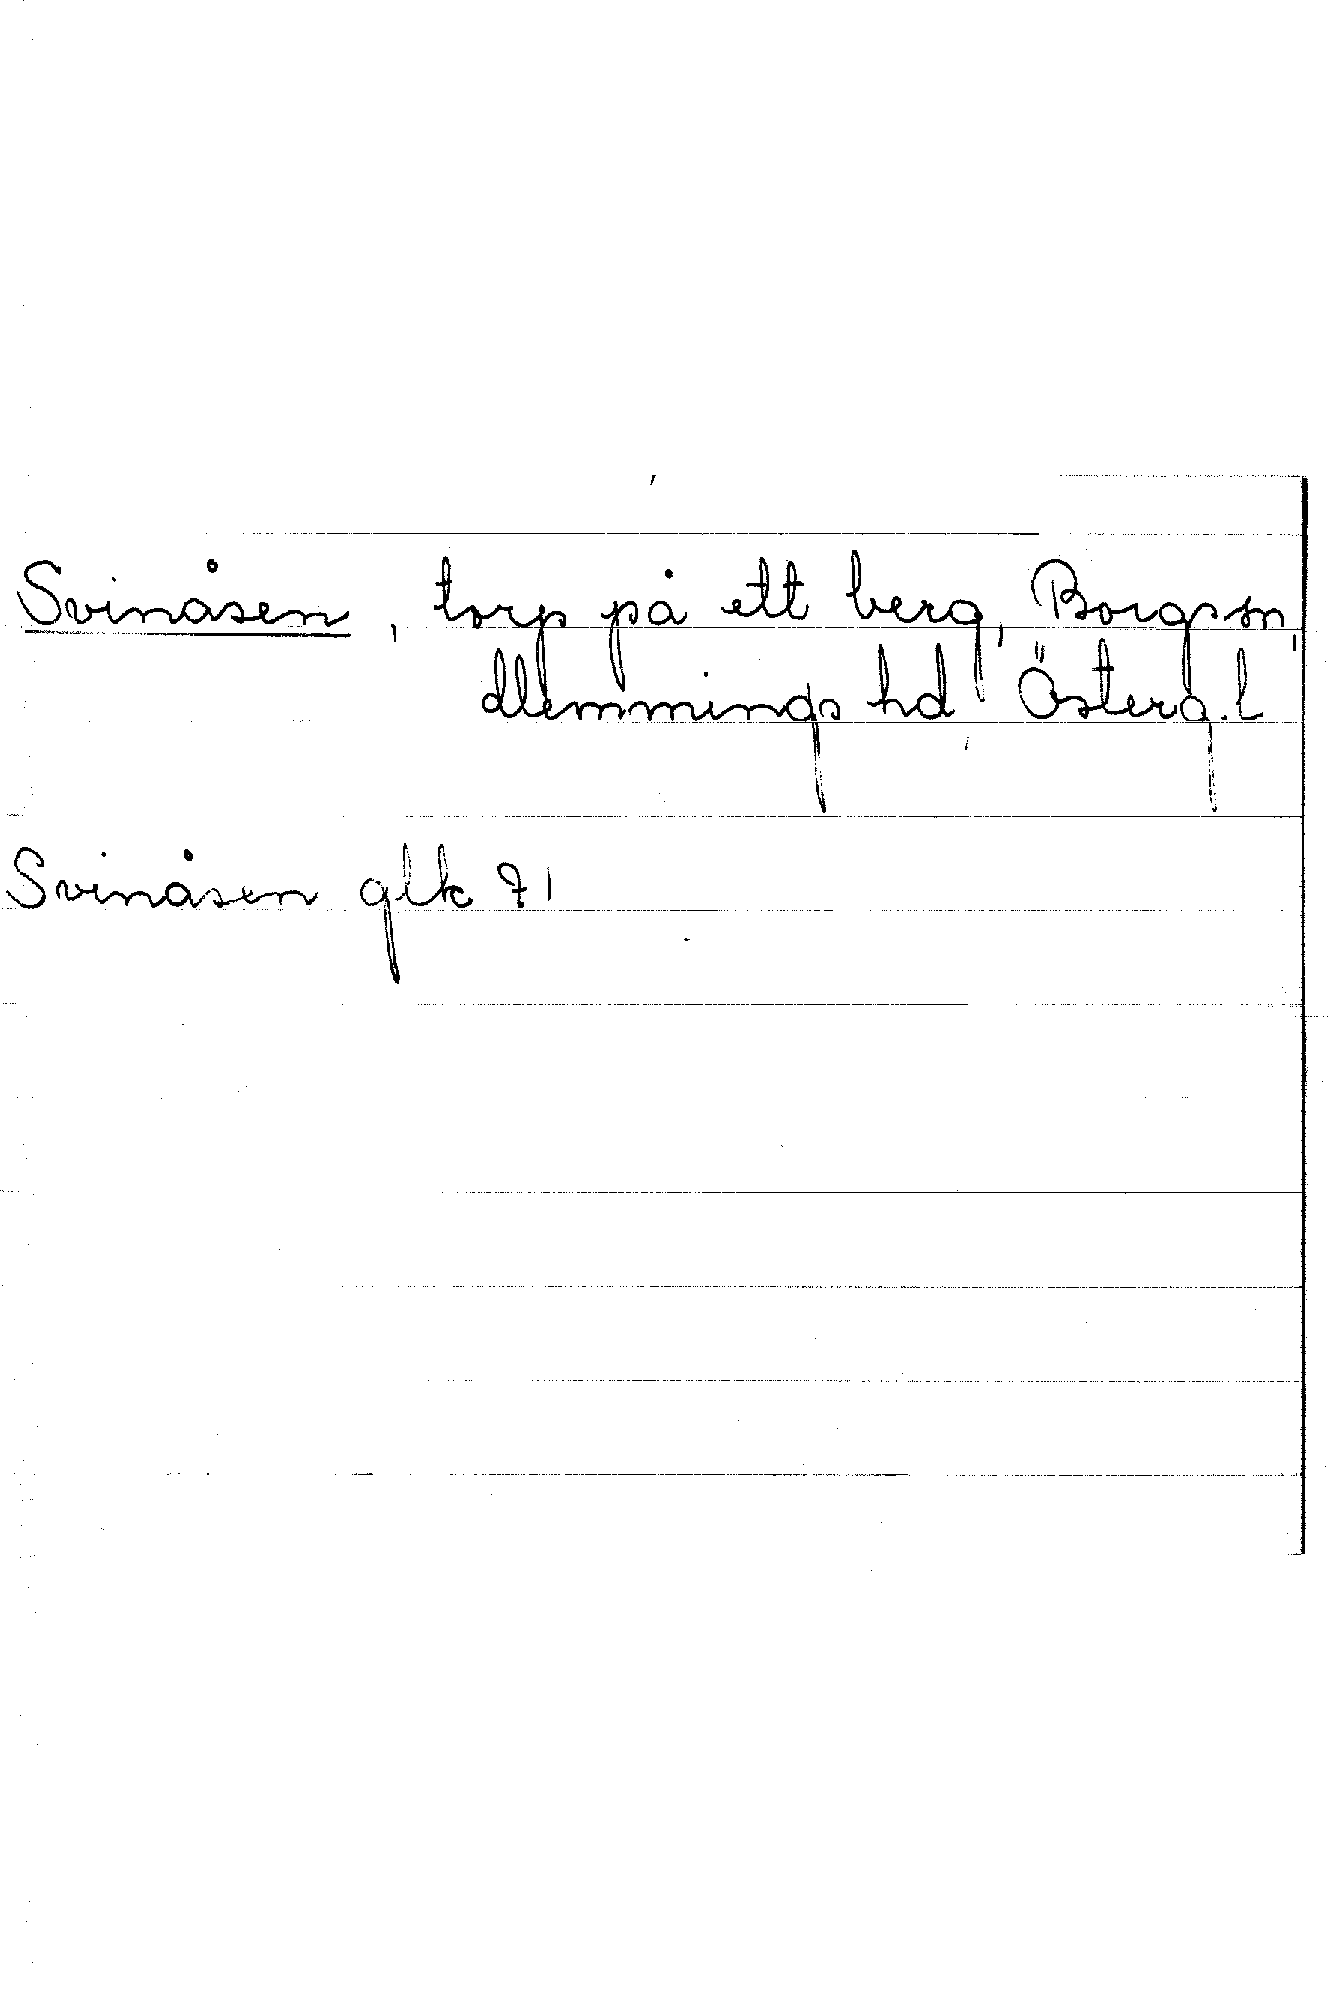 Svinåsen, torp på ett berg, Borgs sn,
Memmings hd, Österg.l
Svinåsen glk 71